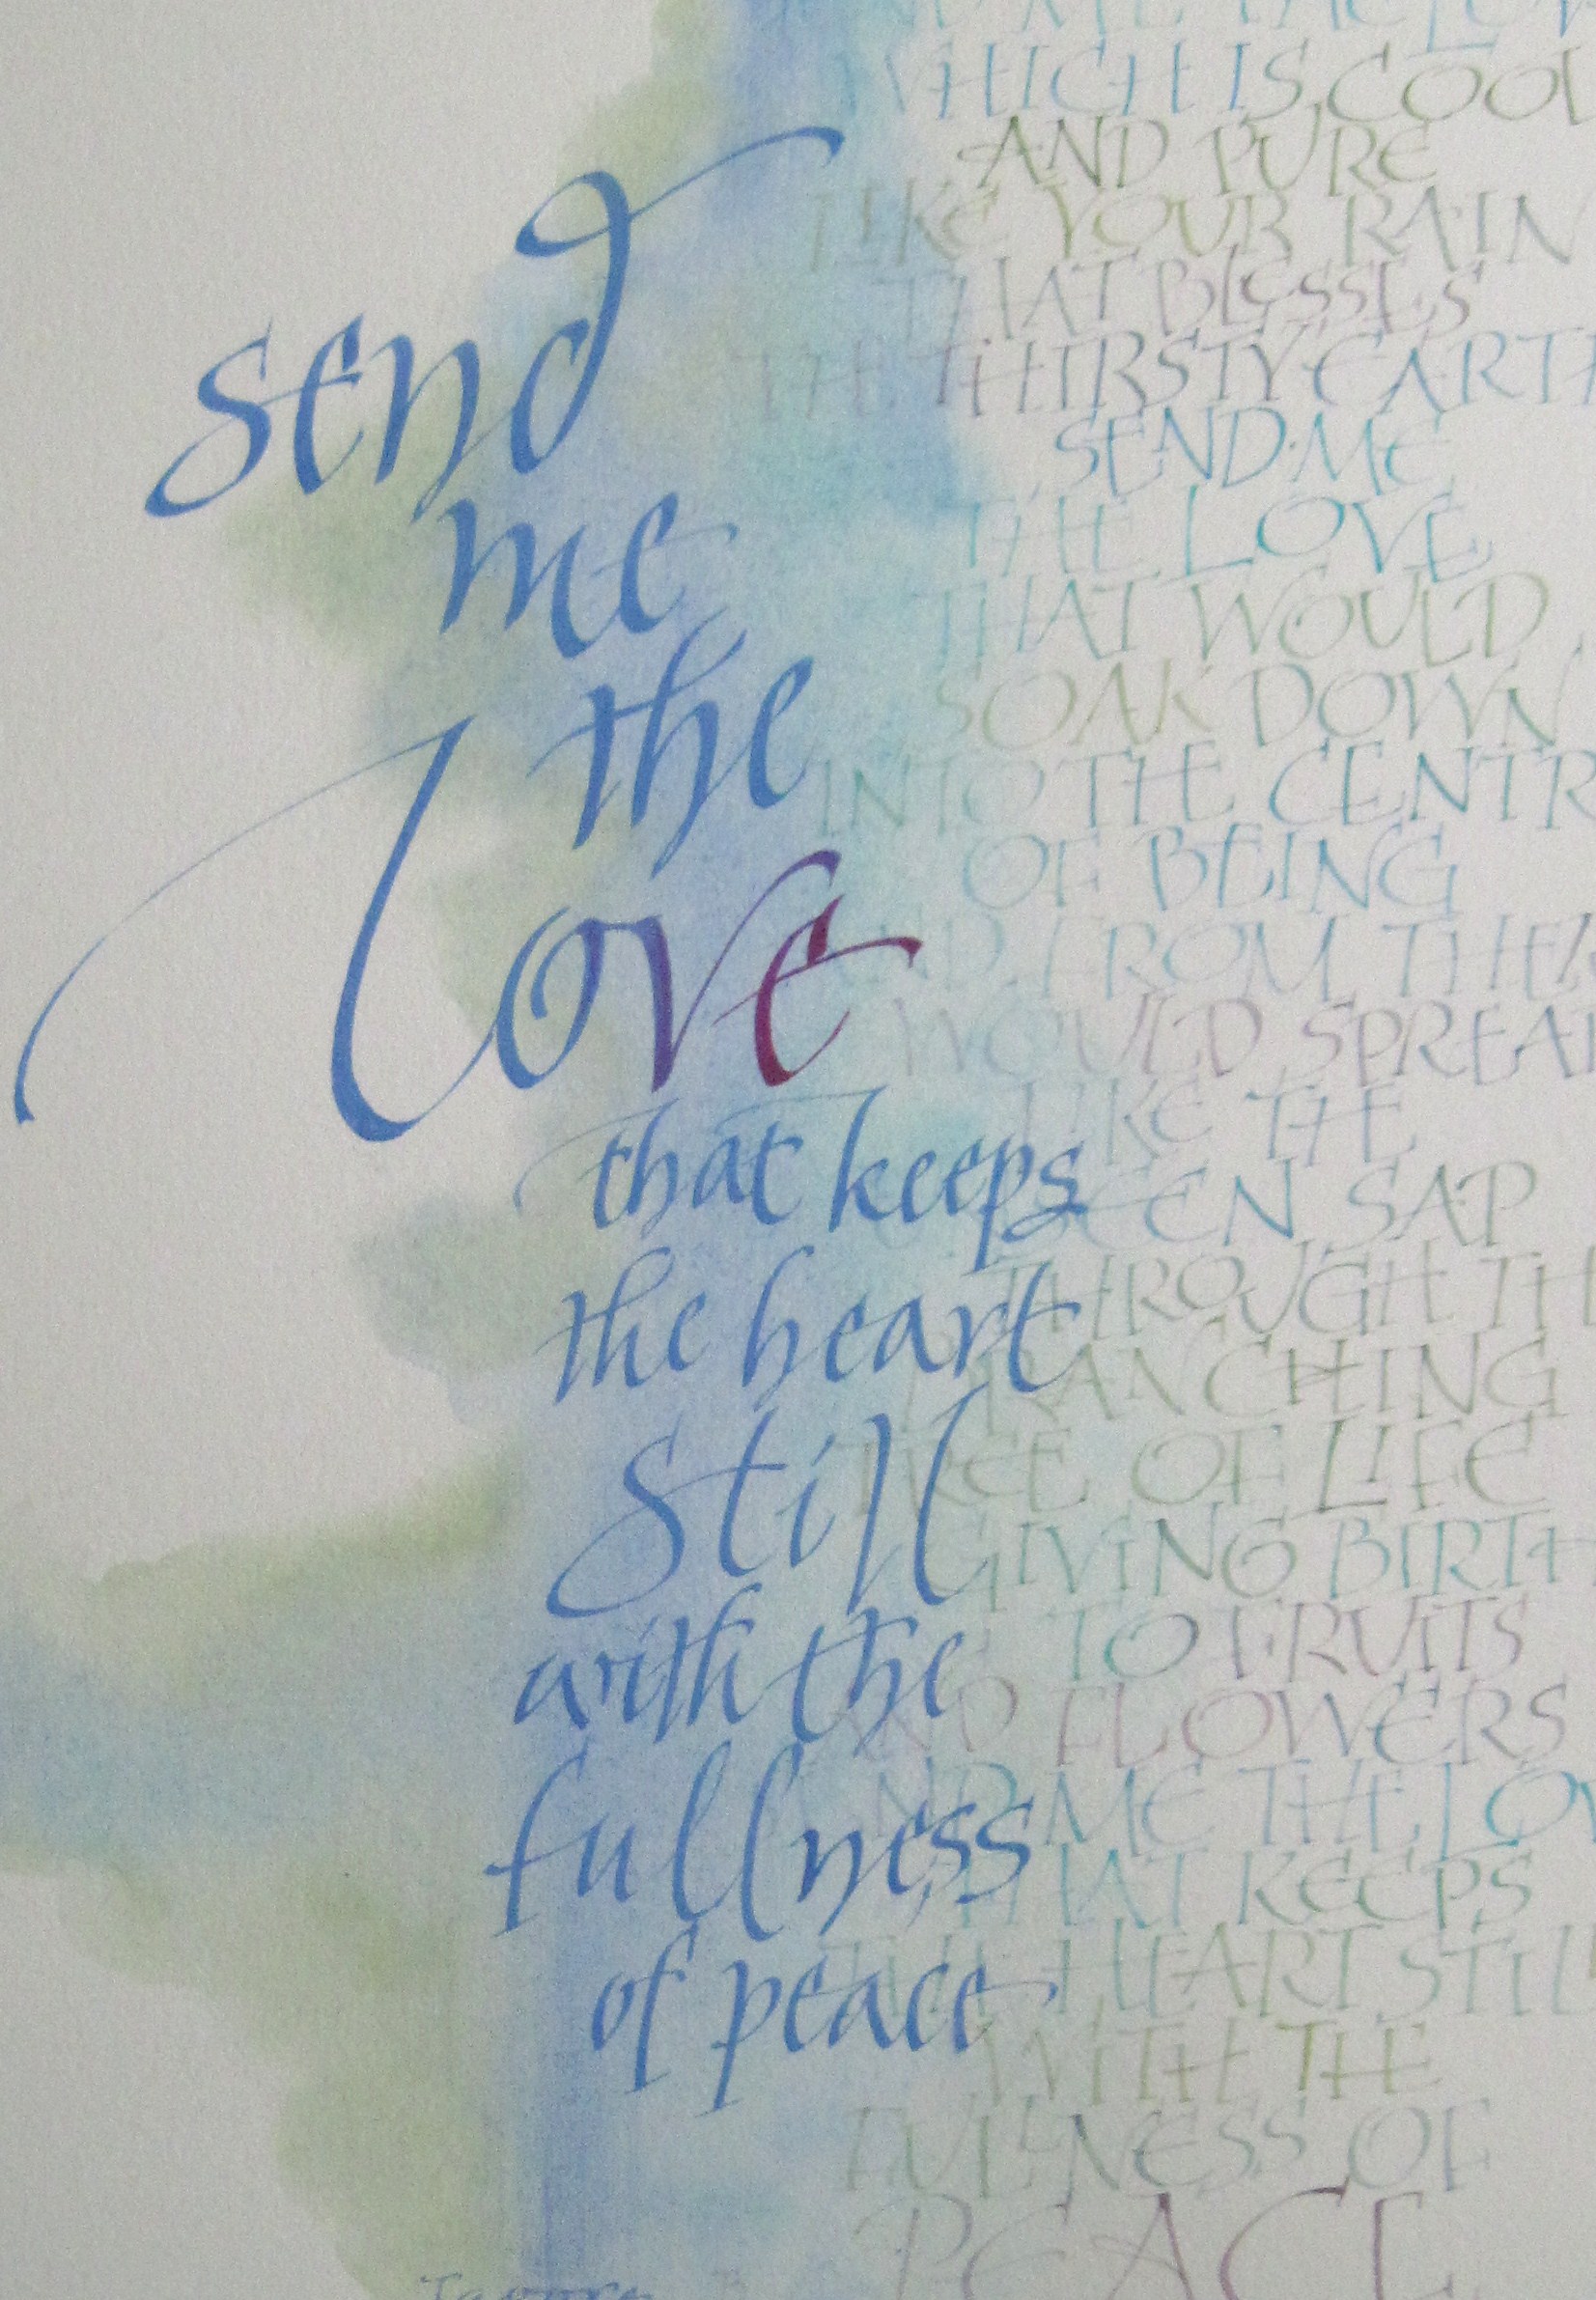 send
me
the
Love
that keeps
the heart
still
with the
fullness
of peace
Tagore
ME THE LOV
WHICH IS COOL
AND PURE
LIKE YOUR RAIN
THAT BLESSES
THE THIRSTY EARTH
SEND ME
THE LOVE
THAT WOULD
SOAK DOWN
INTO THE CENTR
OF BEING
AND FROM THER
WOULD SPREAD
LIKE THE
EEN SAP
THROUGH THE
BRANCHING
TREE OF LIFE
GIVING BIRTH
TO FRUITS
AND FLOWERS
END ME THE LOV
THAT KEEPS
THE HEART STILL
WITH THE
FULLNESS OF
PEACE